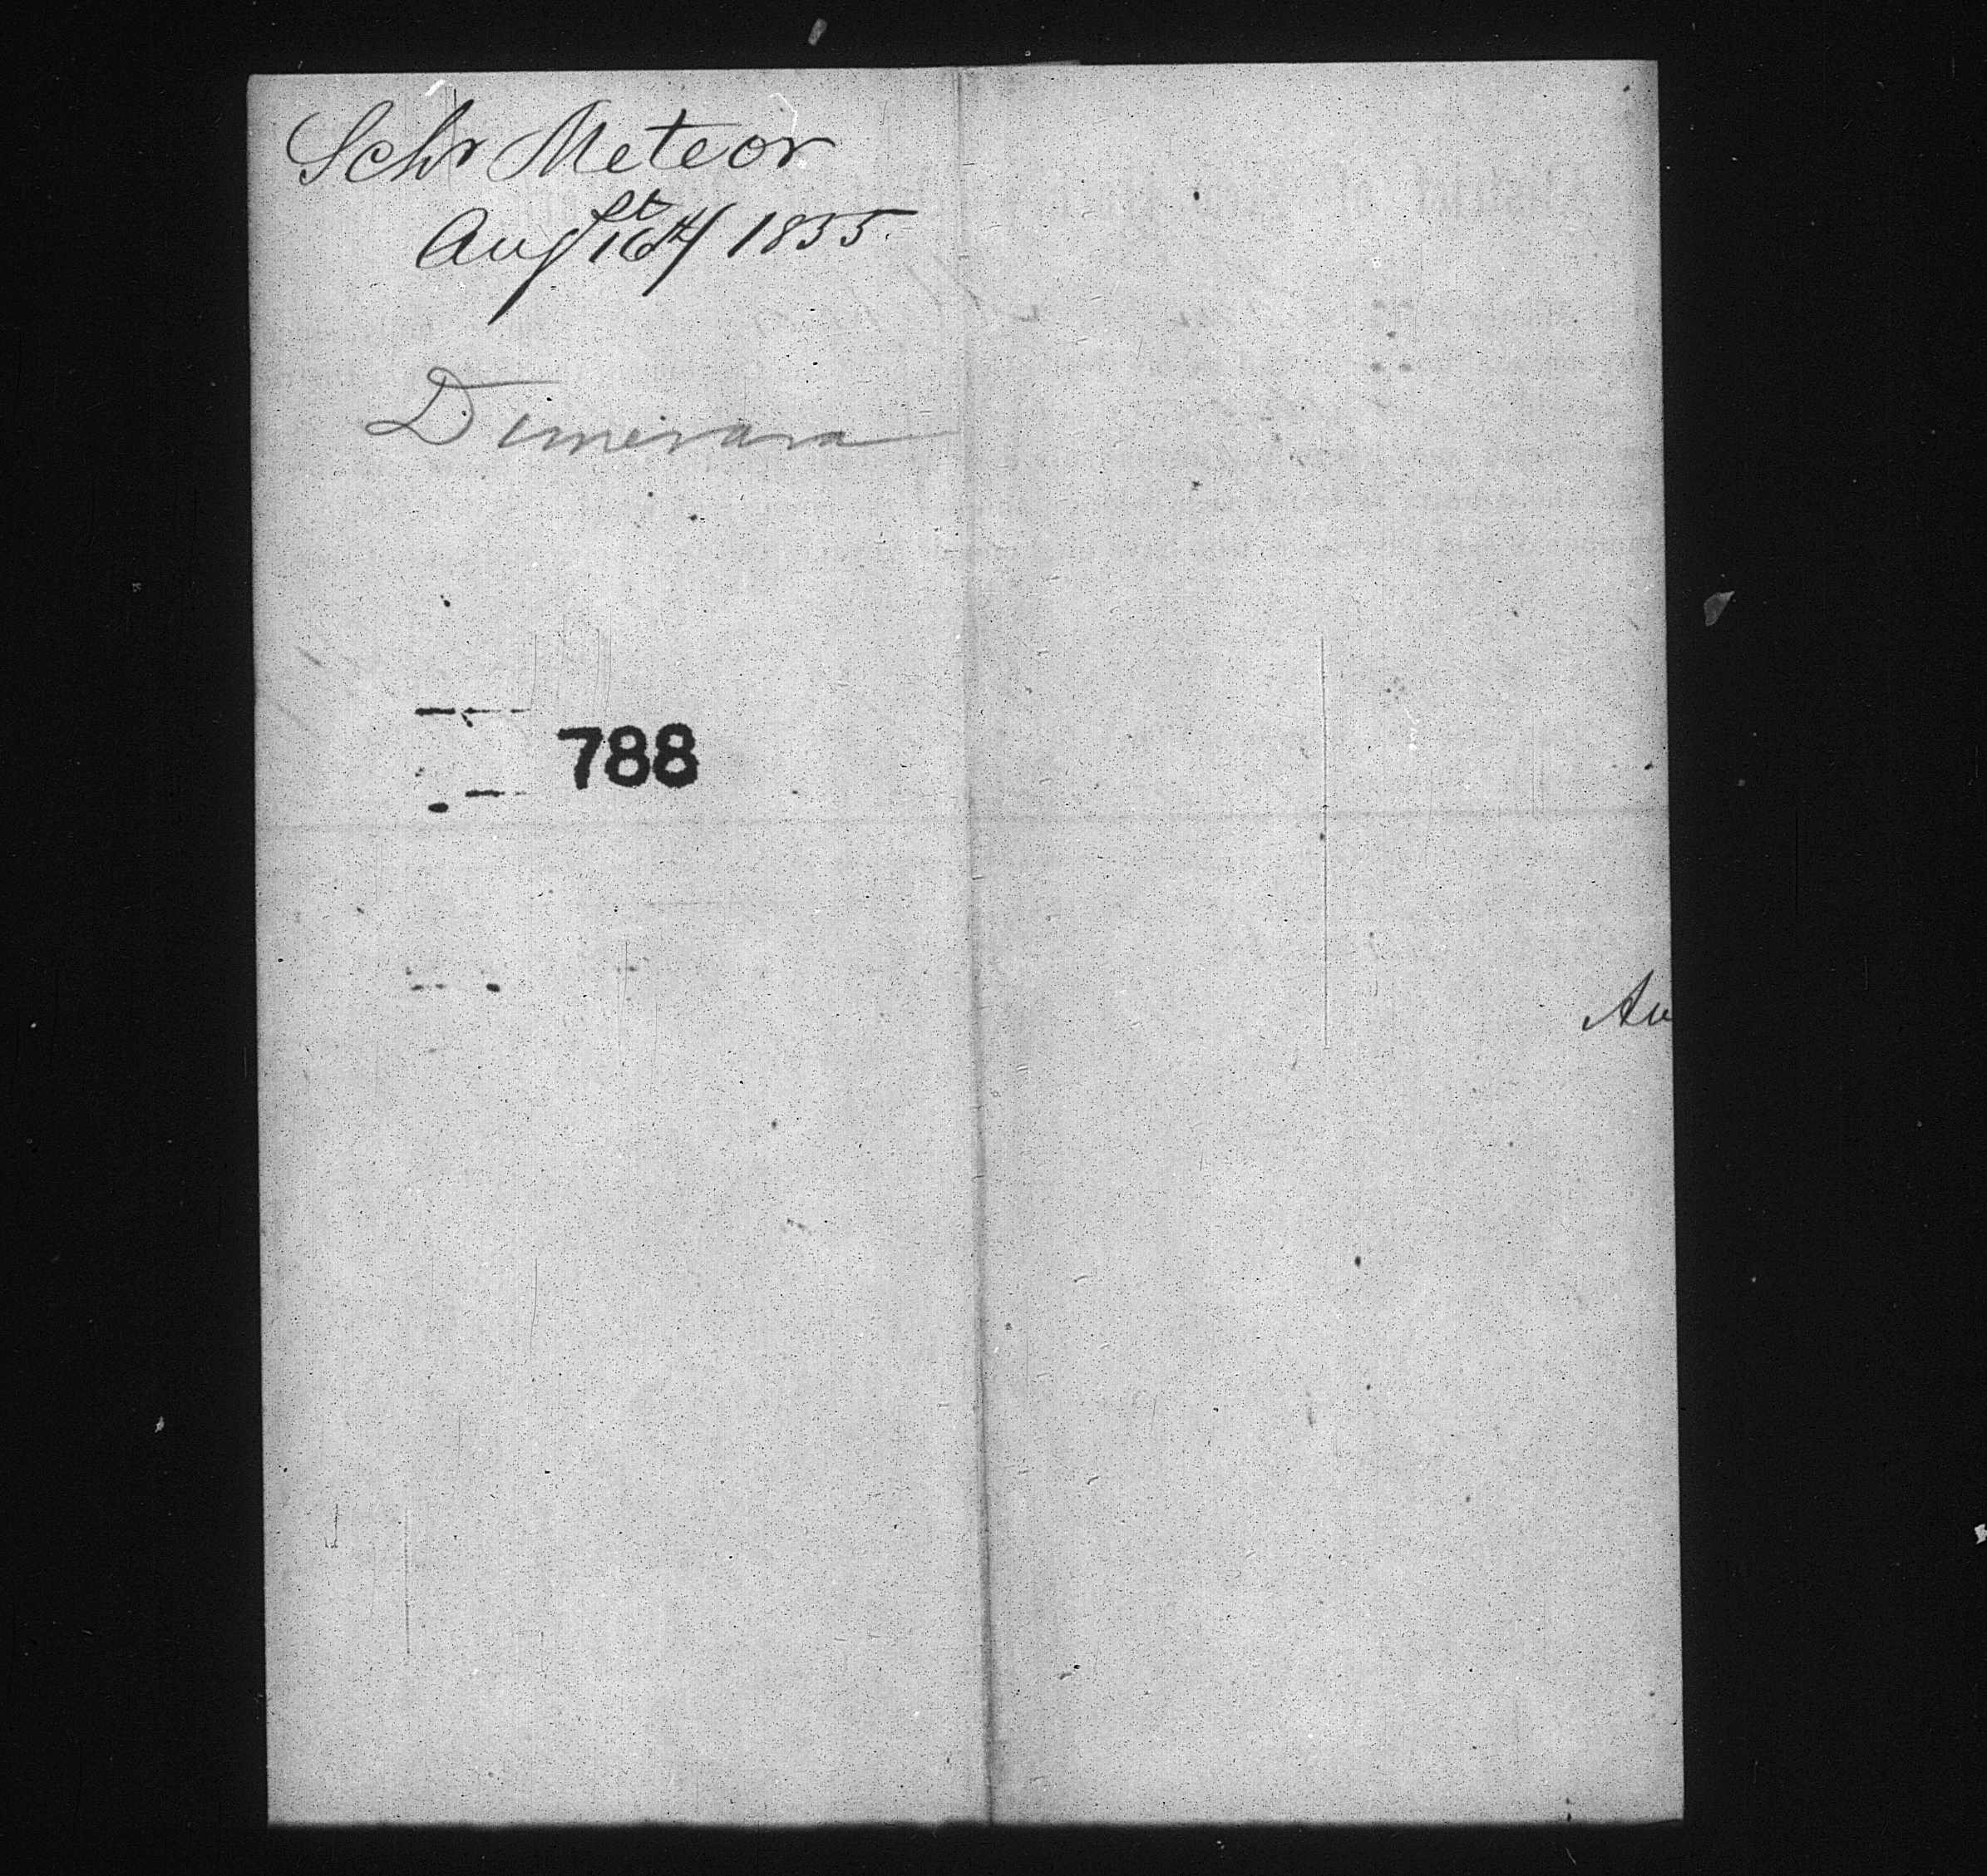 Schr Meteor
Augst 16th 1855.
Dimerara
788
Au